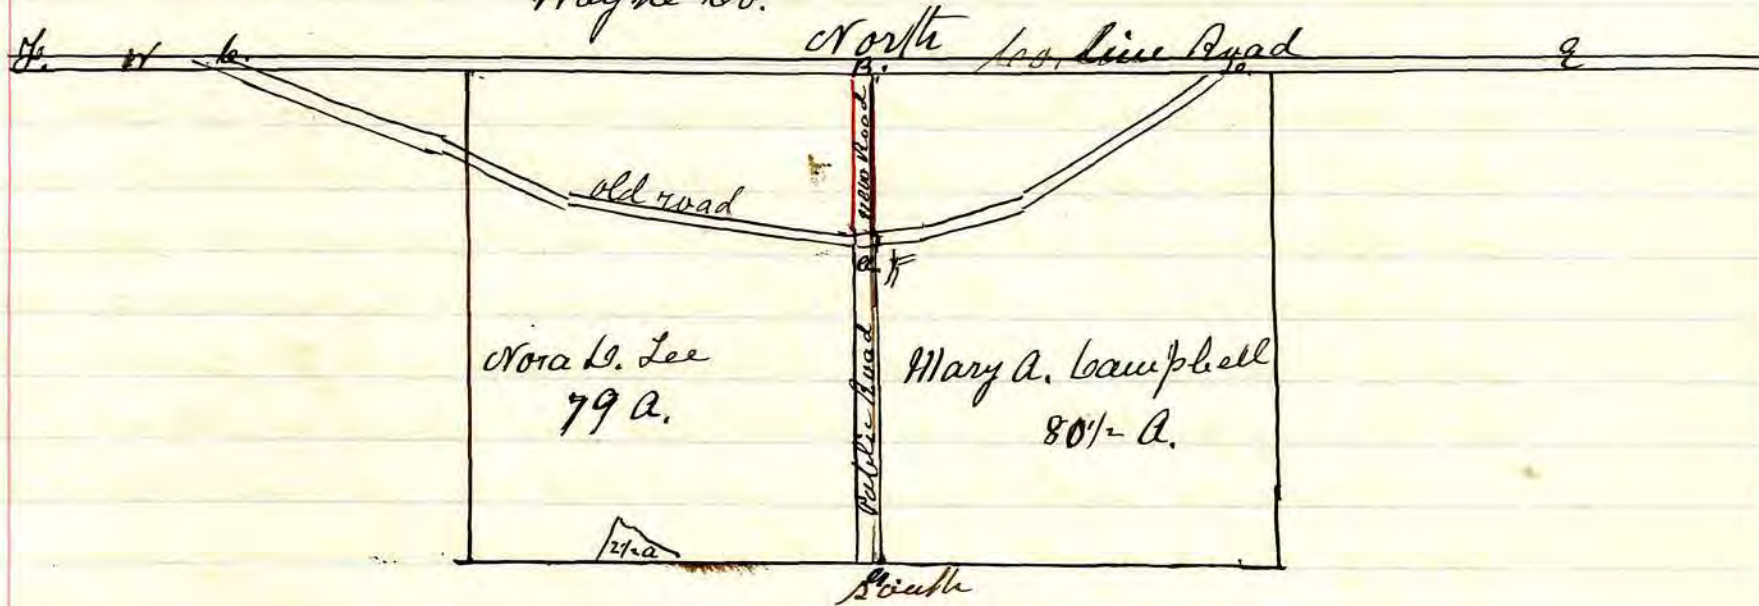 Wayne Co.
North
W C. B. Co. Line Road E
New Road
old road
Public Road
Nora D. Lee
79 A.
Mary A. Campbell
80 1/2 A.
2 1/2 a
South